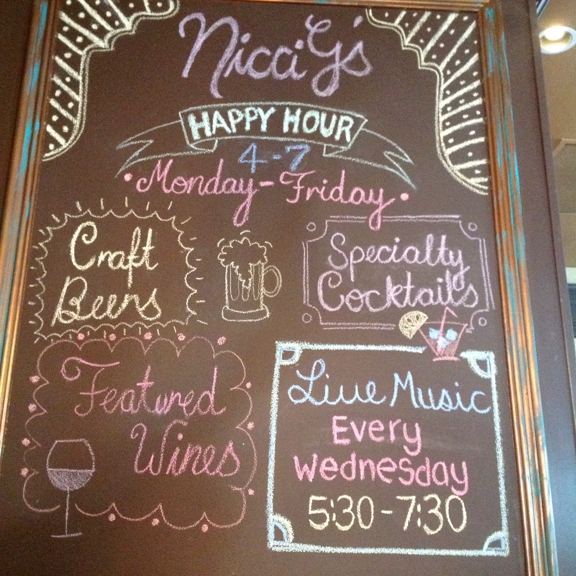 Nicci G's
HAPPY HOUR
4-7
Monday-Friday
Craft
Beers
Specialty
Cocktails
Featured
Wines
Live Music
Every
Wednesday
5:30-7:30